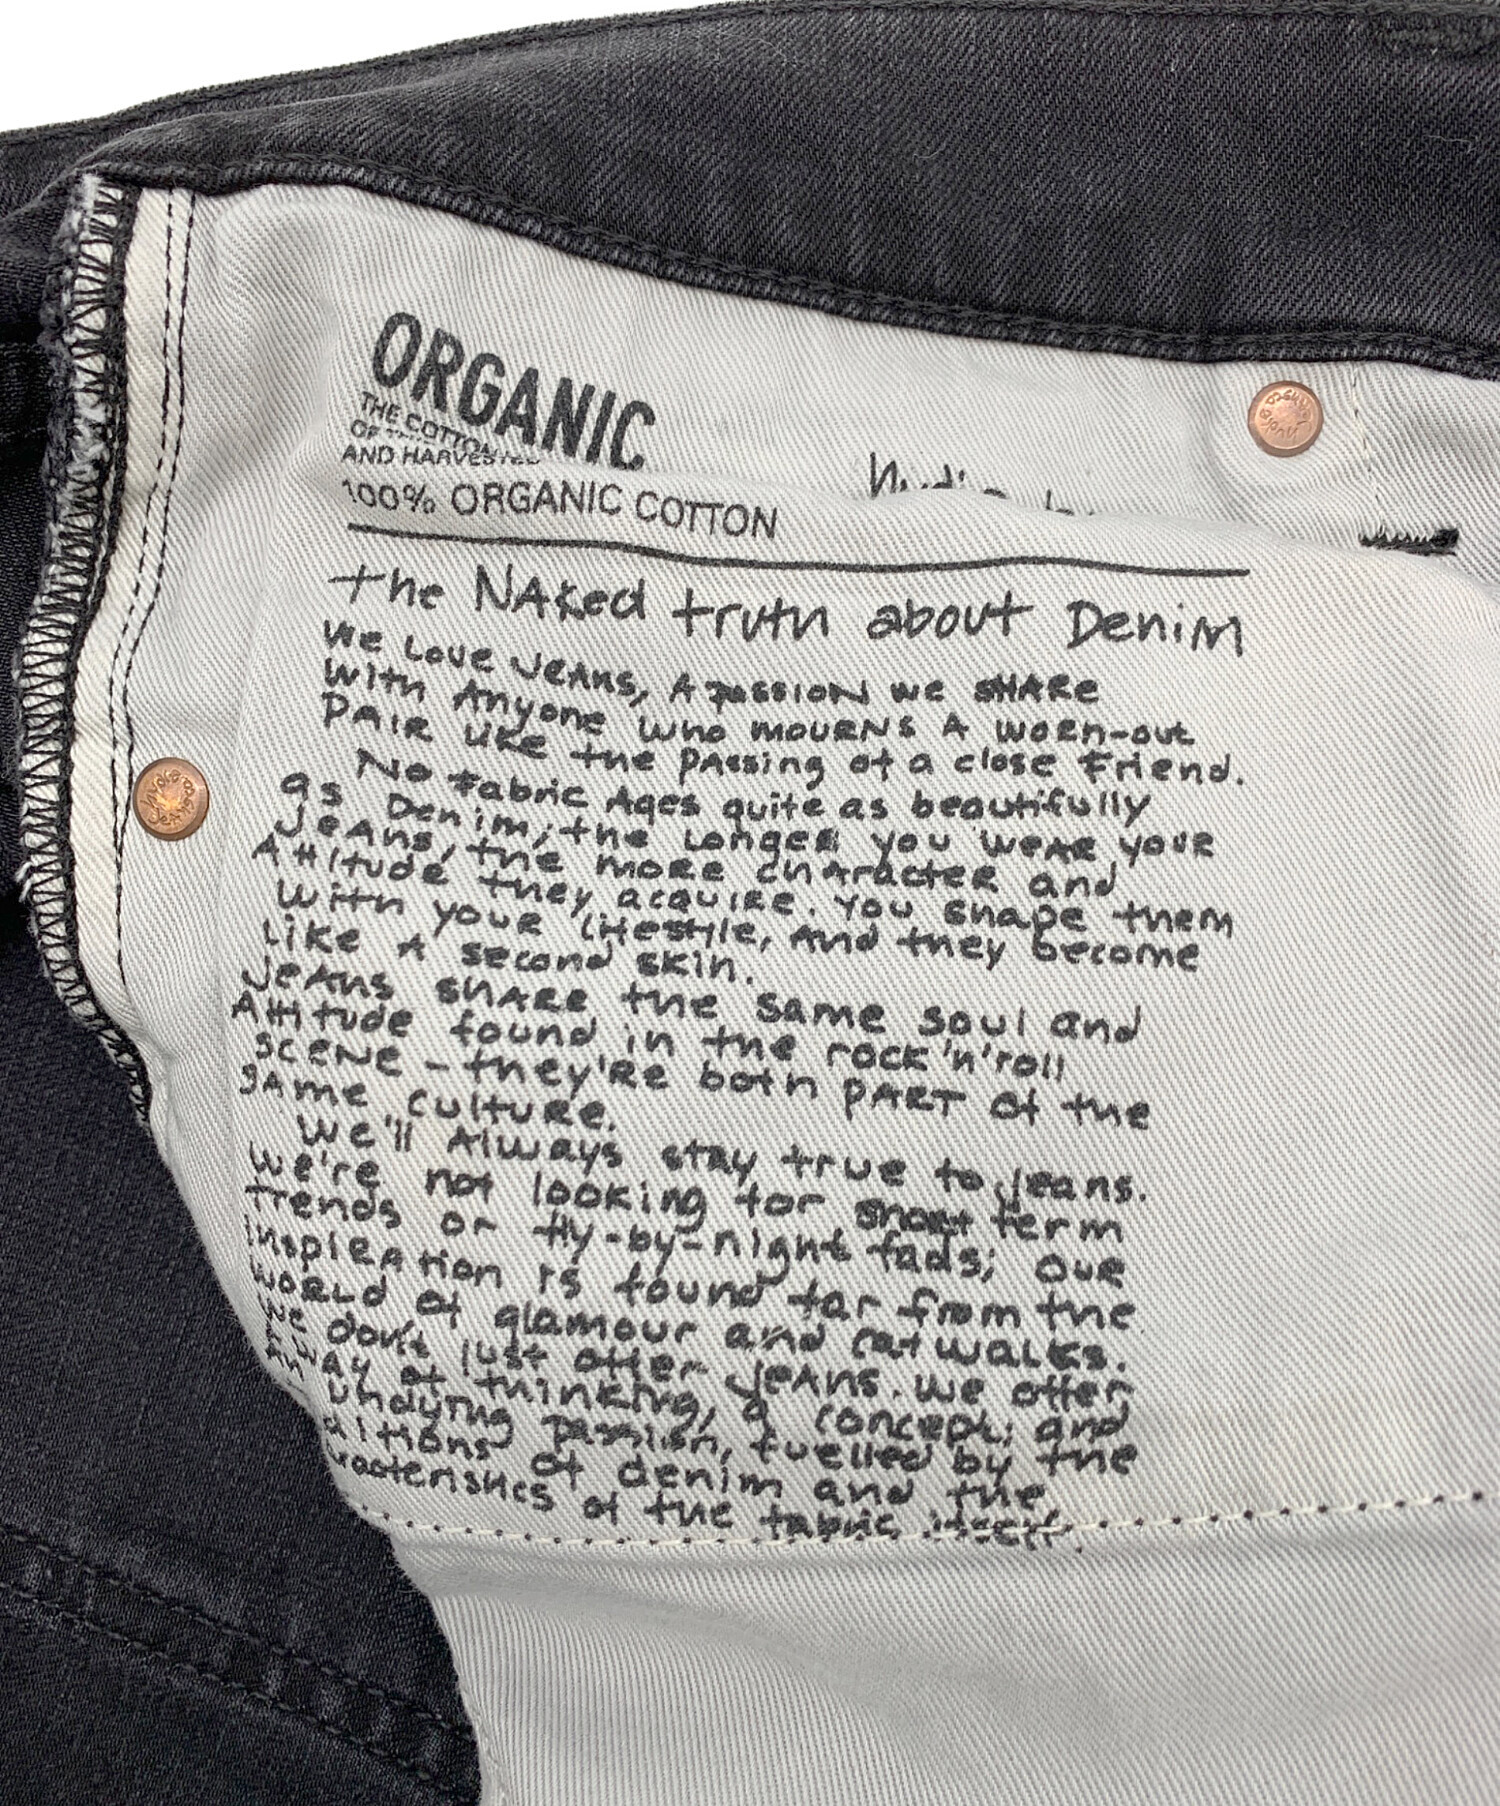 ORGANIC
THE COTTON
OF
AND HARVESTED
100% ORGANIC COTTON
Nudie
the NAked truth about Denim
We Love JeAns, A passion we SHARe
With Anyone who mourns A worn-out
PAIR Like the pAssing of a close friend.
No fabric Ages quite as beautifully
as Denim, the Longer you weAR your
JeAns, the more chAracter and
Attitude they acquire. You shape them
With your lifestyle, And they become
Like A second skin.
JeAns shARe the same soul and
Attitude found in the rock'n'roll
scene - they're both pART of the
sAme culture.
We'll Always stay true to Jeans.
We're not looking for short term
trends or fly-by-night fads; our
inspirAtion is found far from the
WoRLd of glamour and catwalks.
We don't just offer JeAns. We offer
A WAy of thinking, a concept; and
undying passion, fuelled by the
of denim and the
of the fabric itself.